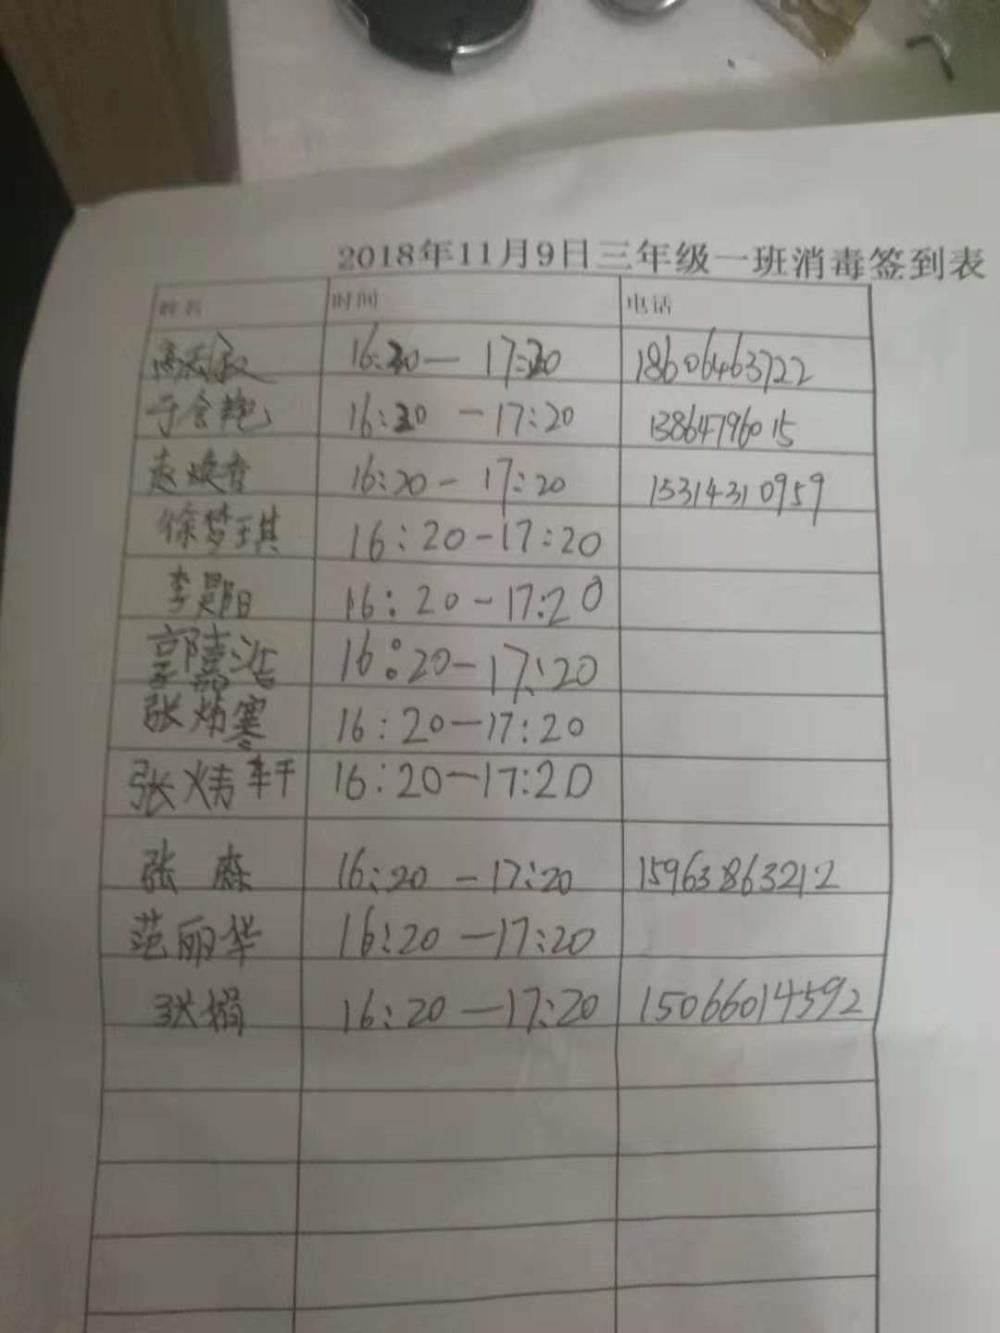 2018年11月9日三年级一班消毒签到表
姓名 时间 电话
16:20— 17:20 18606463722
于会艳 16:20 —17:20 13864796015
赵焕香 16:20— 17:20 15314310959
徐梦琪 16:20-17:20
李郧阳 16:20-17:20
郭嘉浩 16:20-17:20
张炜寒 16:20—17:20
张炜轩 16:20—17:20
张 淼 16:20 —17:20 15963863212
范丽华 16:20 —17:20
张娟 16:20 —17:20 15066014592